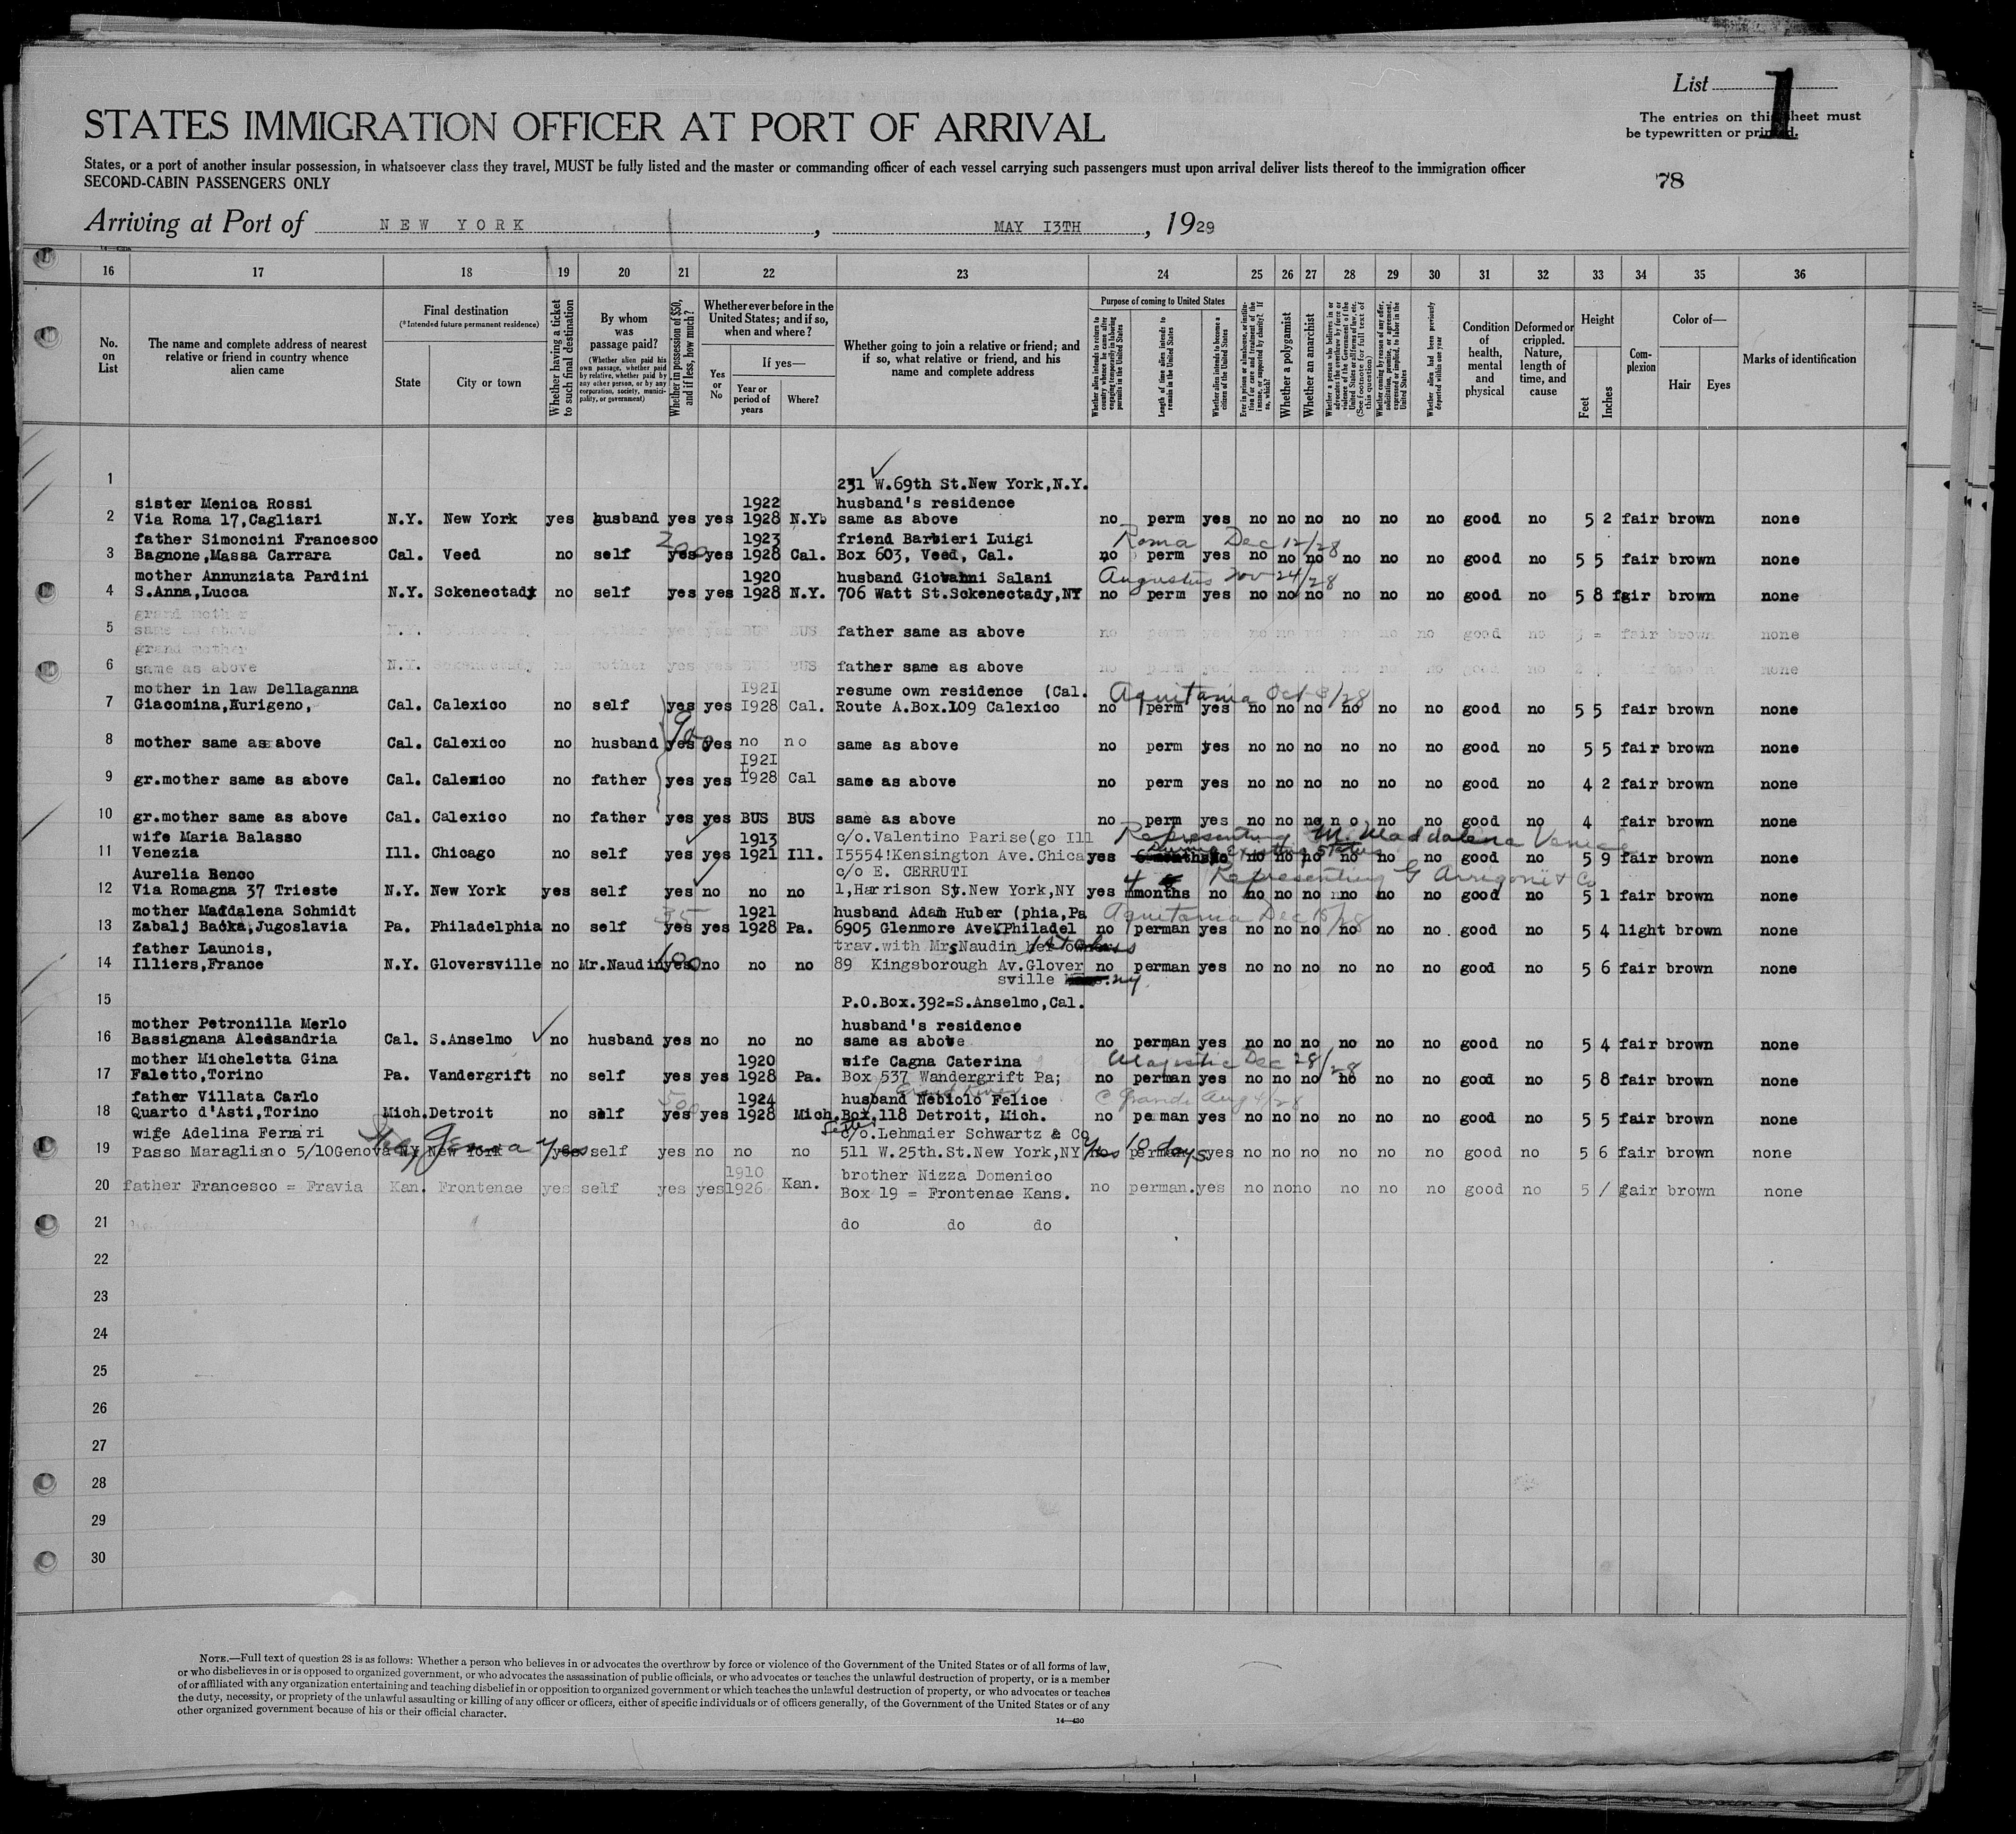 List 1
The entries on this sheet must
be typewritten or printed.
STATES IMMIGRATION OFFICER AT PORT OF ARRIVAL
States, or a port of another insular possession, in whatsoever class they travel, MUST be fully listed and the master or commanding officer of each vessel carrying such passengers must upon arrival deliver lists thereof to the immigration officer
SECOND-CABIN PASSENGERS ONLY
78
Arriving at Port of NEW YORK, MAY 13TH, 1929
16 17 18 19 20 21 22 23 24 25 26 27 28 29 30 31 32 33 34 35 36
No. on List
The name and complete address of nearest relative or friend in country whence alien came
Final destination
(*Intended future permanent residence)
State
City or town
Whether having a ticket to such final destination
By whom was passage paid?
(Whether alien paid his own passage, whether paid by relative, whether paid by any other person, or by any corporation, society, municipality, or government)
Whether in possession of $50, and if less, how much?
Whether ever before in the United States; and if so, when and where?
Yes or No
If yes—
Year or period of years
Where?
Whether going to join a relative or friend; and if so, what relative or friend, and his name and complete address
Purpose of coming to United States
Whether alien intends to return to country whence he came after engaging temporarily in laboring pursuits in the United States
Length of time alien intends to remain in the United States
Whether alien intends to become a citizen of the United States
Ever in prison or almshouse, or institution for care and treatment of the insane, or supported by charity? If so, which?
Whether a polygamist
Whether an anarchist
Whether a person who believes in or advocates the overthrow by force or violence of the Government of the United States or all forms of law, etc. (See footnote for full text of this question)
Whether coming by reason of any offer, solicitation, promise, or agreement, expressed or implied, to labor in the United States
Whether alien had been previously deported within one year
Condition of health, mental and physical
Deformed or crippled. Nature, length of time, and cause
Height
Feet
Inches
Complexion
Color of—
Hair
Eyes
Marks of identification
1 231 W.69th St.New York,N.Y.
sister Menica Rossi 1922 husband's residence
2 Via Roma 17,Cagliari N.Y. New York yes husband yes yes 1928 N.Y. same as above no perm yes no no no no no no good no 5 2 fair brown none
father Simoncini Francesco 200 1923 friend Barbieri Luigi Roma Dec 12/28
3 Bagnone,Massa Carrara Cal. Veed no self yes yes 1928 Cal. Box 603, Veed, Cal. no perm yes no no no no no no good no 5 5 fair brown none
mother Annunziata Pardini 1920 husband Giovanni Salani Augustus Nov 24/28
4 S.Anna,Lucca N.Y. Sckenectady no self yes yes 1928 N.Y. 706 Watt St.Sckenectady,NY no perm yes no no no no no no good no 5 8 fair brown none
grand mother
5 same as above N.Y. Sckenectady no mother yes yes BUS BUS father same as above no perm yes no no no no no no good no fair brown none
grand mother
6 same as above N.Y. Sckenectady no mother yes yes BUS BUS father same as above no good no none
mother in law Dellaganna 1921 resume own residence (Cal. Aquitania Oct 3/28
7 Giacomina,Aurigeno, Cal. Calexico no self yes yes 1928 Cal. Route A.Box.109 Calexico no perm yes no no no no no no good no 5 5 fair brown none
8 mother same as above Cal. Calexico no husband yes yes no no same as above no perm yes no no no no no no good no 5 5 fair brown none
1921
9 gr.mother same as above Cal. Calexico no father yes yes 1928 Cal same as above no perm yes no no no no no no good no 4 2 fair brown none
10 gr.mother same as above Cal. Calexico no father yes yes BUS BUS same as above no perm yes no no no no no no good no 4 fair brown none
wife Maria Balasso 1913 c/o.Valentino Parise(go Ill Representing M. Maddalena Venice
11 Venezia Ill. Chicago no self yes yes 1921 Ill. I5554!Kensington Ave.Chica yes 6 months no no no no no no no good no 5 9 fair brown none
During existing status
Aurelia Benco c/o E. CERRUTI Representing G Arrigoni & Co
12 Via Romagna 37 Trieste N.Y. New York yes self yes no no no 1,Harrison St.New York,NY yes 4 months no no no no no no no good no 5 1 fair brown none
mother Maddalena Schmidt 35 1921 husband Adam Huber (phia,Pa Aquitania Dec 15/28
13 Zabalj Backa,Jugoslavia Pa. Philadelphia no self yes yes 1928 Pa. 6905 Glenmore Ave.Philadel no perman yes no no no no no no good no 5 4 light brown none
father Launois, 100 trav.with Mrs Naudin 1st class
14 Illiers,France N.Y. Gloversville no Mr.Naudin yes no no no 89 Kingsborough Av.Glover no perman yes no no no no no no good no 5 6 fair brown none
sville N.Y.
15 P.O.Box.392=S.Anselmo,Cal.
mother Petronilla Merlo husband's residence
16 Bassignana Alessandria Cal. S.Anselmo no husband yes no no no same as above no perman yes no no no no no no good no 5 4 fair brown none
mother Micheletta Gina 1920 wife Cagna Caterina Majestic Dec 28/28
17 Faletto,Torino Pa. Vandergrift no self yes yes 1928 Pa. Box 537 Wandergrift Pa; no perman yes no no no no no no good no 5 8 fair brown none
father Villata Carlo 500 1924 husband Nebiolo Felice C Grande Aug 4/28
18 Quarto d'Asti,Torino Mich. Detroit no self yes yes 1928 Mich. Box,118 Detroit, Mich. no perman yes no no no no no no good no 5 5 fair brown none
wife Adelina Ferrari c/o.Lehmaier Schwartz & Co
19 Passo Maragliano 5/10Genova Italy Genoa NY New York yes self yes no no no 511 W.25th.St.New York,NY yes 10 days perman yes no no no no no no good no 5 6 fair brown none
1910 brother Nizza Domenico
20 father Francesco = Fravia Kan. Frontenae yes self yes yes 1926 Kan. Box 19 = Frontenae Kans. no perman. yes no no no no no no good no 5 / fair brown none
21 do do do
22
23
24
25
26
27
28
29
30
NOTE.—Full text of question 28 is as follows: Whether a person who believes in or advocates the overthrow by force or violence of the Government of the United States or of all forms of law,
or who disbelieves in or is opposed to organized government, or who advocates the assassination of public officials, or who advocates or teaches the unlawful destruction of property, or is a member
of or affiliated with any organization entertaining and teaching disbelief in or opposition to organized government or which teaches the unlawful destruction of property, or who advocates or teaches
the duty, necessity, or propriety of the unlawful assaulting or killing of any officer or officers, either of specific individuals or of officers generally, of the Government of the United States or of any
other organized government because of his or their official character.
14—430